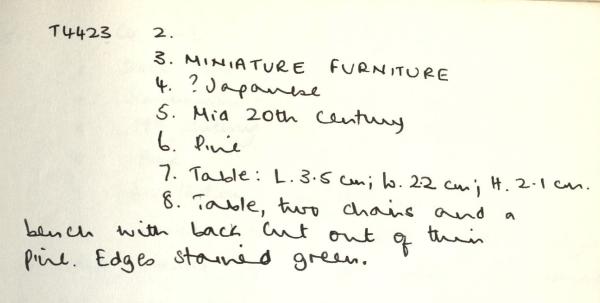 T4423 2.
3. MINIATURE FURNITURE
4. ?Japanese
5. Mid 20th Century
6. Pine
7. Table: L. 3.5 cm; W. 2.2 cm; H. 2.1 cm.
8. Table, two chairs and a
bench with back cut out of thin
pine. Edges stained green.